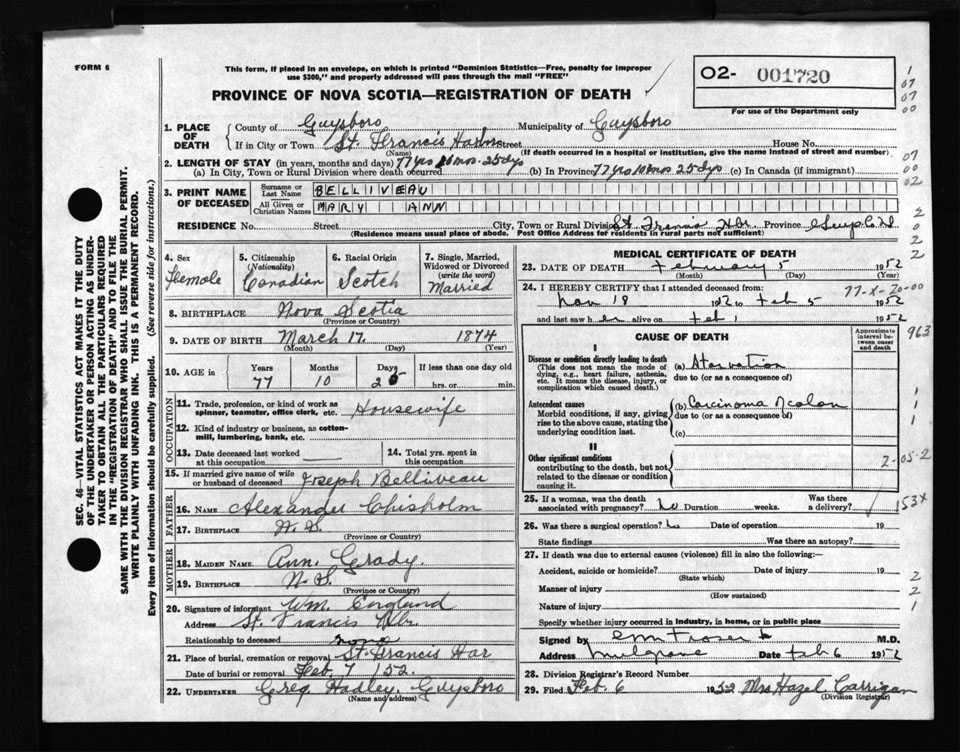 FORM 6
This form, if placed in an envelope, on which is printed "Dominion Statistics—Free, penalty for improper use $300," and properly addressed will pass through the mail "FREE"
PROVINCE OF NOVA SCOTIA—REGISTRATION OF DEATH
02- 001720
For use of the Department only
1. PLACE OF DEATH
County of Guysboro Municipality of Guysboro
If in City or Town St. Francis Harbor Street House No.
(Name) (If death occurred in a hospital or institution, give the name instead of street and number)
2. LENGTH OF STAY (in years, months and days) 77 yrs 10 mos. 25 dys
(a) In City, Town or Rural Division where death occurred (b) In Province 77 yrs 10 mos 25 dys (c) In Canada (if immigrant)
3. PRINT NAME OF DECEASED
Surname or Last Name BELLIVEAU
All Given or Christian Names MARY ANN
RESIDENCE No. Street City, Town or Rural Division St. Francis Hbr. Province
(Residence means usual place of abode. Post Office Address for residents in rural parts not sufficient)
4. Sex Female
5. Citizenship (Nationality) Canadian
6. Racial Origin Scotch
7. Single, Married, Widowed or Divorced (write the word) Married
8. BIRTHPLACE Nova Scotia
(Province or Country)
9. DATE OF BIRTH March 17, 1874
(Month) (Day) (Year)
10. AGE IN Years Months Days If less than one day old
77 10 25 hrs. or min.
OCCUPATION
11. Trade, profession, or kind of work as spinner, teamster, office clerk, etc. Housewife
12. Kind of industry or business, as cotton-mill, lumbering, bank, etc.
13. Date deceased last worked at this occupation 14. Total yrs. spent in this occupation
15. If married give name of wife or husband of deceased Joseph Belliveau
FATHER
16. NAME Alexander Chisholm
17. BIRTHPLACE N. S.
(Province or Country)
MOTHER
18. MAIDEN NAME Ann Grady.
19. BIRTHPLACE N. S.
(Province or Country)
20. Signature of informant Wm. Corgland
Address St. Francis Hbr.
Relationship to deceased none
21. Place of burial, cremation or removal St. Francis Har
Date of burial or removal Feb. 7, 152.
22. UNDERTAKER Greg Hadley, Guysboro
(Name and address)
MEDICAL CERTIFICATE OF DEATH
23. DATE OF DEATH February 5 1952
(Month) (Day) (Year)
24. I HEREBY CERTIFY that I attended deceased from:
Nov 18 1952 to Feb 5 1952
and last saw her alive on Feb 1 1952
77-X-20-00
CAUSE OF DEATH
Approximate interval between onset and death
963
I
Disease or condition directly leading to death
(This does not mean the mode of dying, e.g., heart failure, asthenia, etc. It means the disease, injury, or complication which caused death.)
(a) Starvation
due to (or as a consequence of)
Antecedent causes
Morbid conditions, if any, giving rise to the above cause, stating the underlying condition last.
(b) Carcinoma of colon
due to (or as a consequence of)
(c)
II
Other significant conditions
contributing to the death, but not related to the disease or condition causing it.
2-05-2
25. If a woman, was the death associated with pregnancy? No Duration weeks. Was there a delivery?
153X
26. Was there a surgical operation? No Date of operation 19
State findings Was there an autopsy?
27. If death was due to external causes (violence) fill in also the following:—
Accident, suicide or homicide? Date of injury 19
(State which)
Manner of injury
(How sustained)
Nature of injury
Specify whether injury occurred in industry, in home, or in public place
Signed by M.D.
Address Mulgrave Date Feb 6 1952
28. Division Registrar's Record Number
29. Filed Feb. 6 1952 Mrs Hazel Carrigan
(Division Registrar)
SEC. 46—VITAL STATISTICS ACT MAKES IT THE DUTY OF THE UNDERTAKER OR PERSON ACTING AS UNDERTAKER TO OBTAIN ALL THE PARTICULARS REQUIRED IN THE "REGISTRATION OF DEATH" AND TO FILE THE SAME WITH THE DIVISION REGISTRAR WHO SHALL ISSUE THE BURIAL PERMIT.
WRITE PLAINLY WITH UNFADING INK. THIS IS A PERMANENT RECORD.
Every item of information should be carefully supplied. (See reverse side for instructions.)
1
07
07
00
07
00
02
2
0
2
2
1
1
1
2
2
1